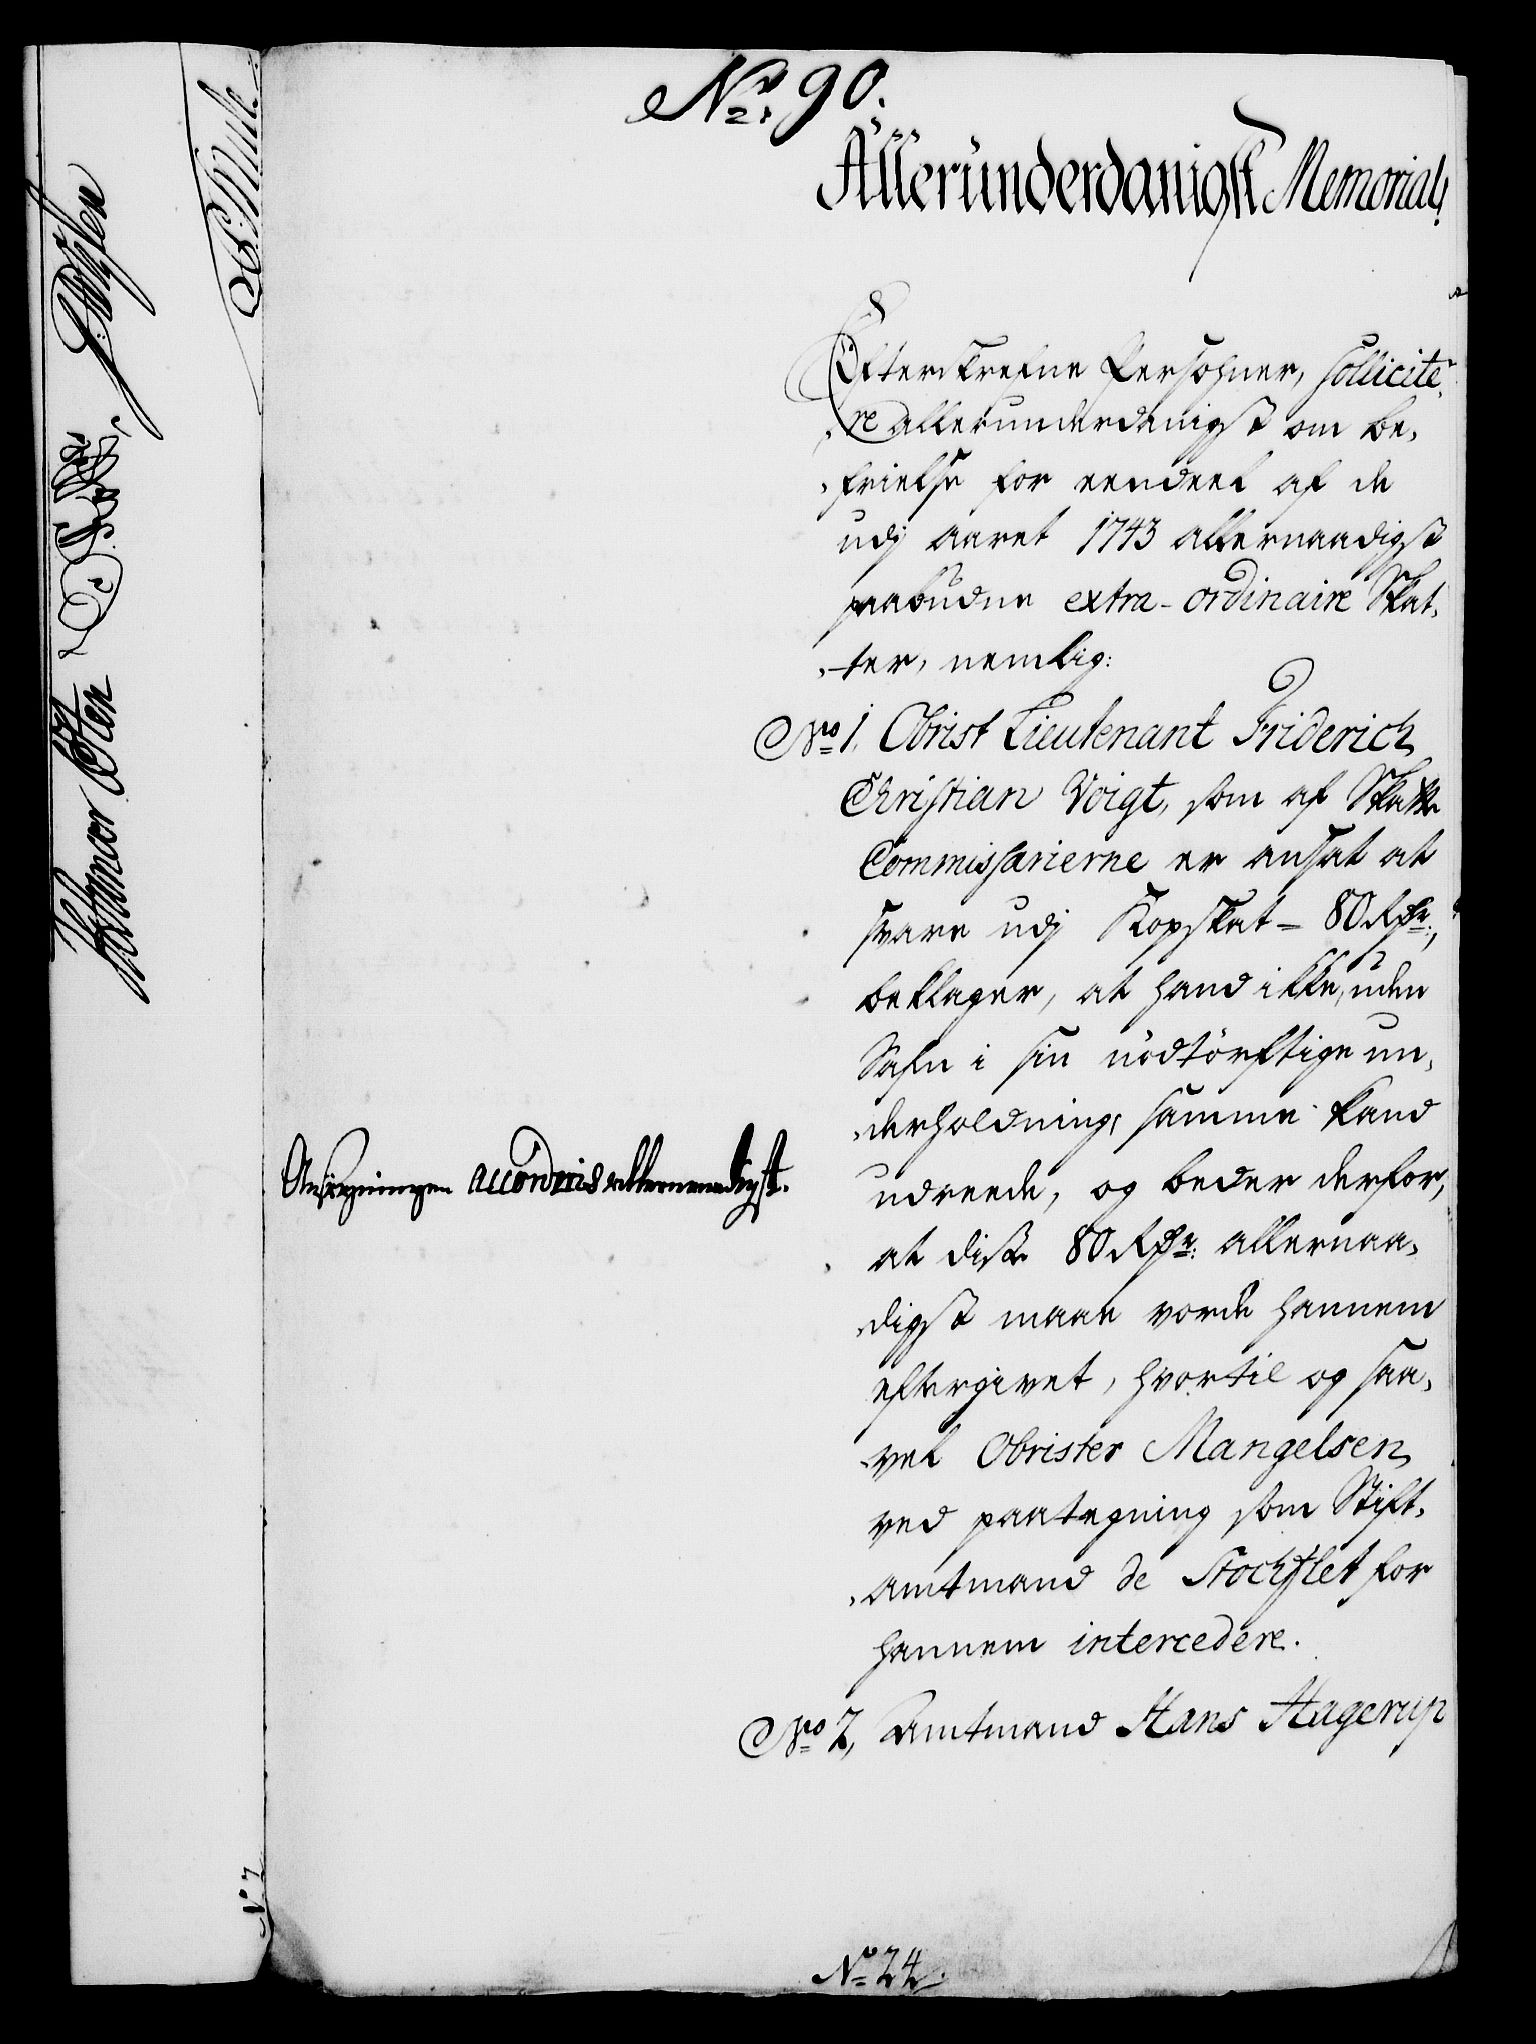 No. 90.
Allerunderdanigst Memorial,
Efterskrefne Persohner, sollicite-
re allerunderdanigst om be-
frielse for eendeel af de
udj aaret 1743 allernaadigst
paabudne extra-ordinaire Skat-
ter, nemlig:
No 1. Obrist Lieutenant Friderich
Christian Voigt, som af Skatte
Commissarierne er ansat at
svare udj Kopskat = 80 Rdr:,
beklager, at hand ikke, uden
Safn i sin nödtörftige un-
derholdning, samme kand
udreede, og beder derfor,
at disse 80 Rdr: allernaa-
digst maae vorde hannem
eftergivet, hvortil og saa-
vel Obrister Mangelsen
ved paategning som Stift-
amtmand de Stochflet for
hannem intercedere.
Ansøgningen accorderis allernaadigst.
No 2, Amtmand Hans Hagerup
No 24.